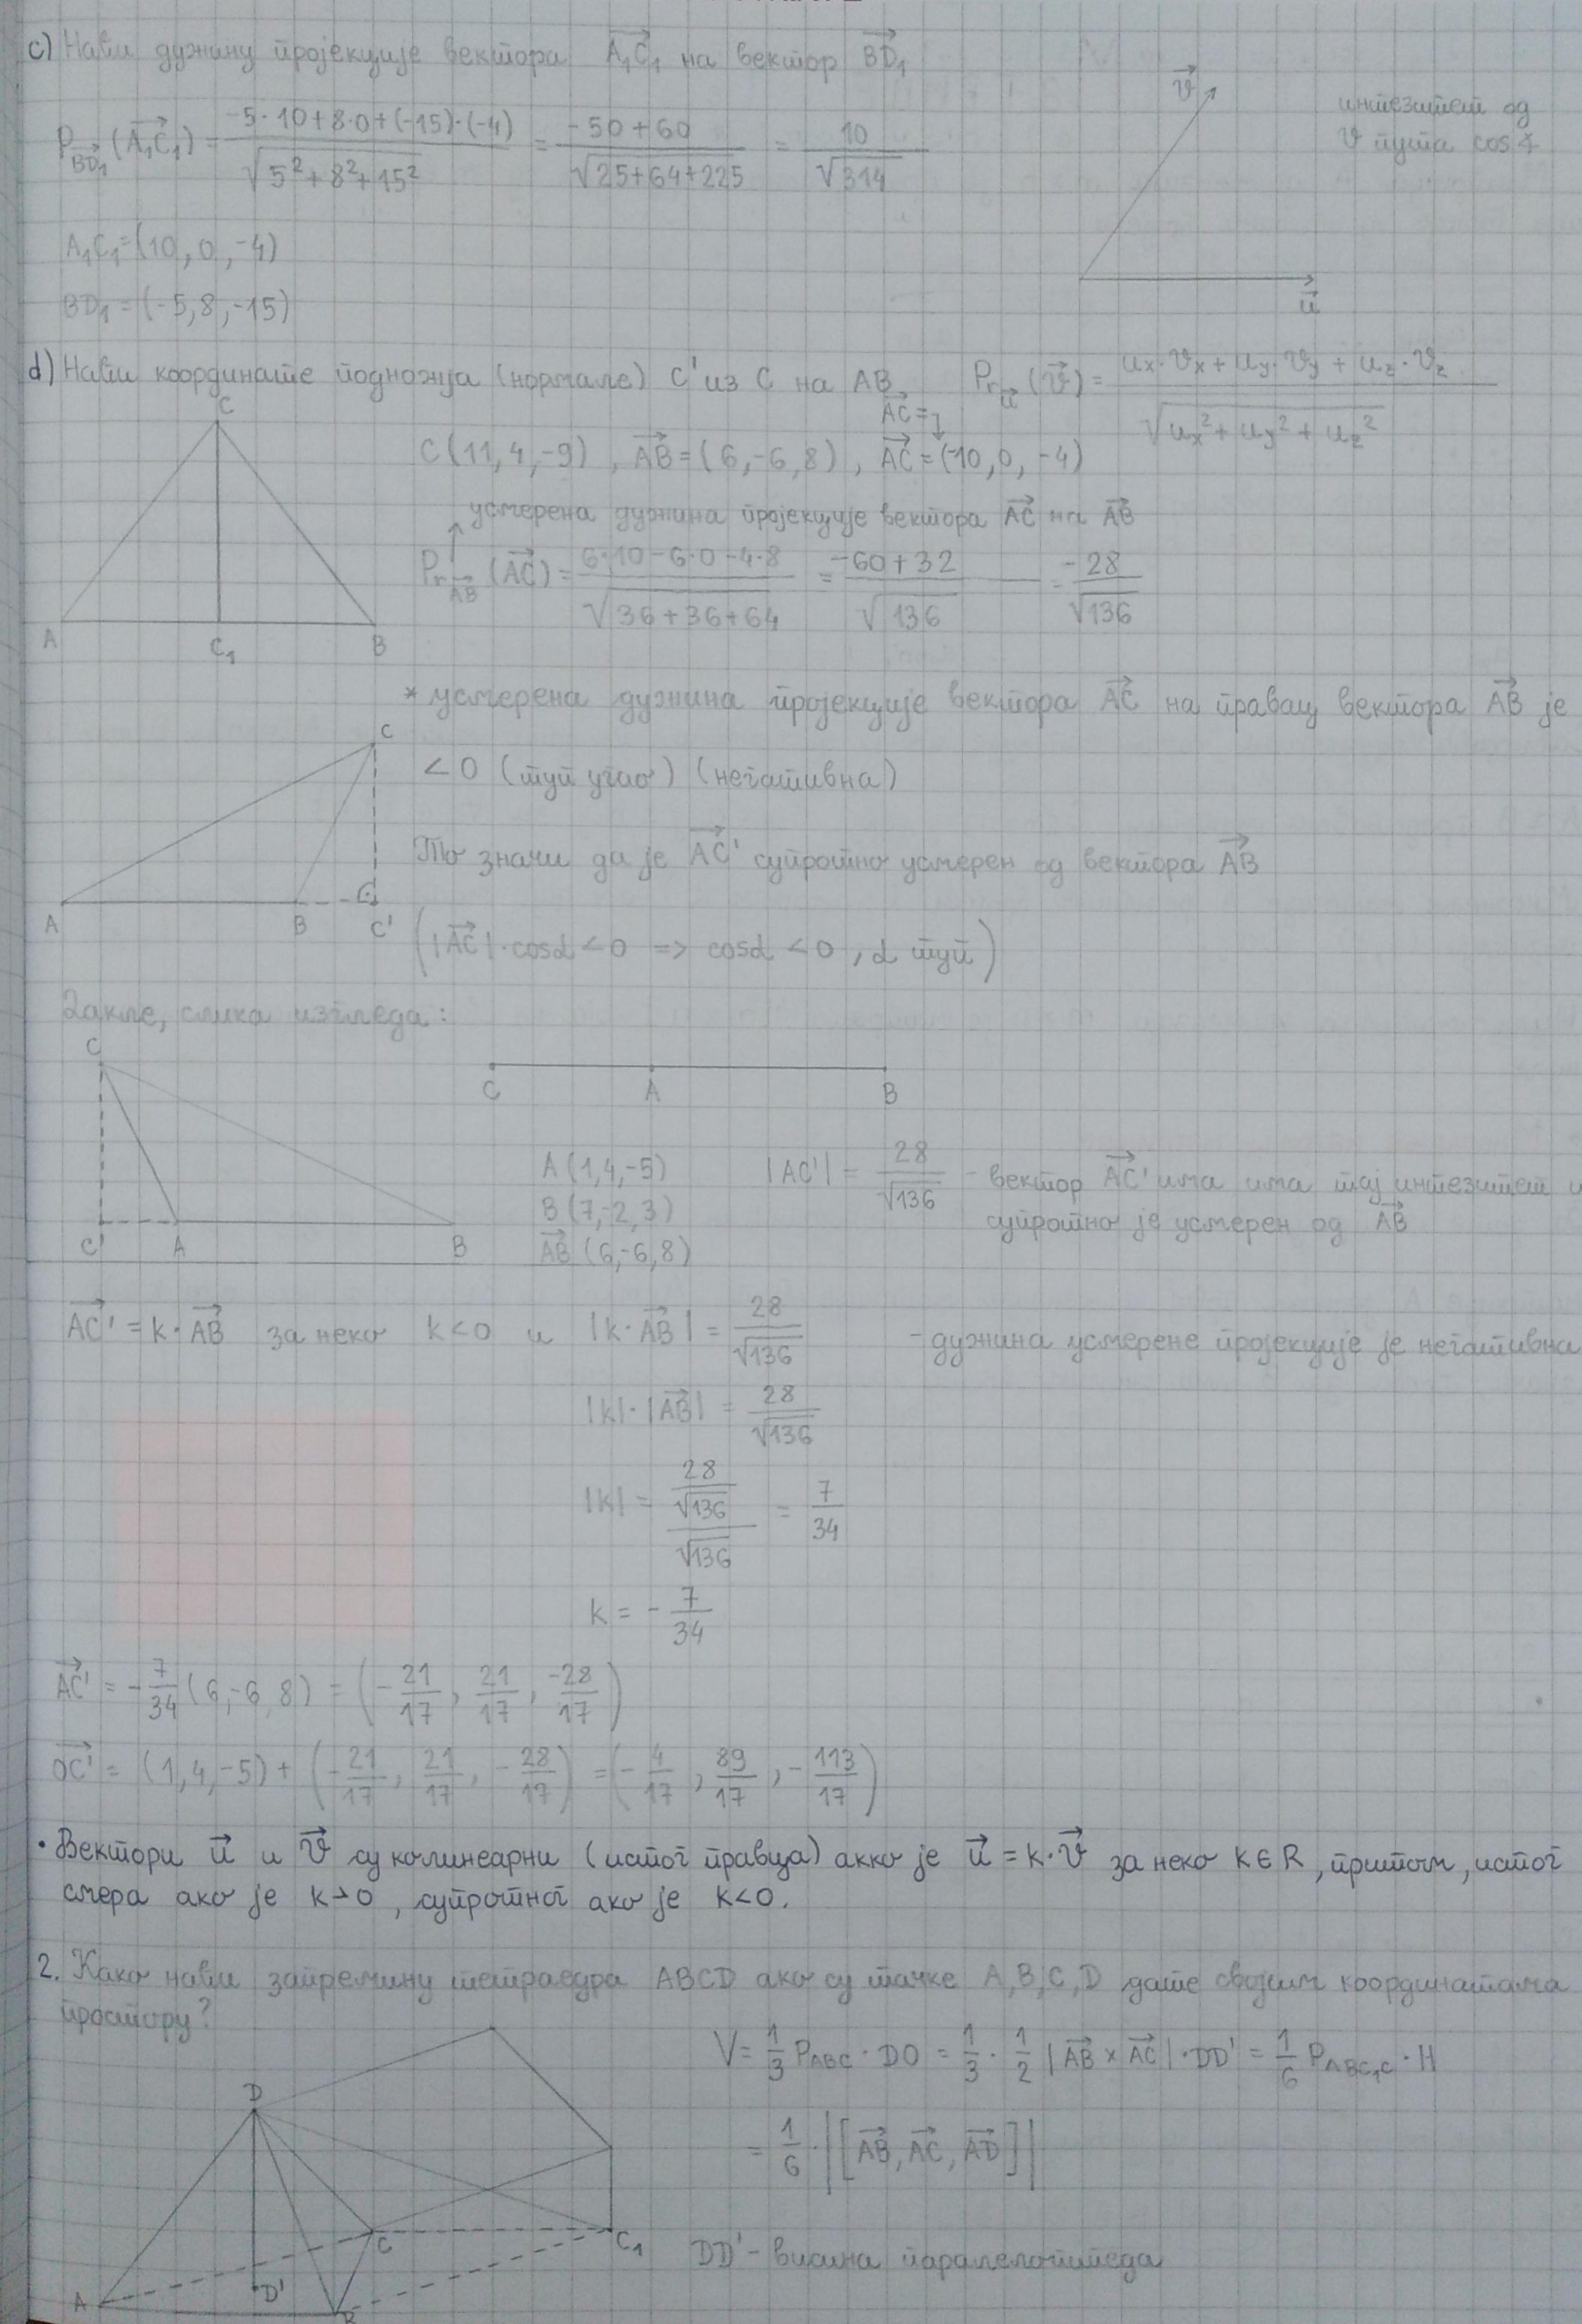 c) Наћи дужину пројекције вектора A₁C₁ на вектор BD₁
Pr BD₁ (A₁C₁) = (-5·10+8·0+(-15)·(-4))/√(5²+8²+15²) = (-50+60)/√(25+64+225) = 10/√314
v
интезитет од
v пута cos∡
u
A₁C₁=(10,0,-4)
BD₁=(-5,8,-15)
d) Наћи координате подножја (нормале) C' из C на AB
Pr u (v) = (ux·vx + uy·vy + uz·vz)/√(ux²+uy²+uz²)
C
A C₁ B
AC =
C(11,4,-9), AB=(6,-6,8), AC=(-10,0,-4)
усмерена дужина пројекције вектора AC на AB
Pr AB (AC) = (6·10-6·0-4·8)/√(36+36+64) = (-60+32)/√136 = -28/√136
* усмерена дужина пројекције вектора AC на правац вектора AB је
<0 (туп угао) (негативна)
C
A B C'
То значи да је AC' супротно усмерен од вектора AB
(|AC|·cosα<0 => cosα<0, α туп)
Дакле, слика изгледа:
C
C' A B
C A B
A(1,4,-5)
B(7,-2,3)
AB(6,-6,8)
|AC'| = 28/√136 - вектор AC' има има тај интезитет и
супротно је усмерен од AB
AC' = k·AB за неко k<0 и |k·AB| = 28/√136 - дужина усмерене пројекције је негативна
|k|·|AB| = 28/√136
|k| = (28/√136)/√136 = 7/34
k = -7/34
AC' = -7/34 (6,-6,8) = (-21/17, 21/17, -28/17)
OC' = (1,4,-5) + (-21/17, 21/17, -28/17) = (-4/17, 89/17, -113/17)
• Вектори u и v су колинеарни (истог правца) акко је u = k·v за неко k∈R, притом, истог
смера ако је k>0, супротног ако је k<0.
2. Како наћи запремину тетраедра ABCD ако су тачке A,B,C,D дате својим координатама
простору?
V = 1/3 P_ABC · DO = 1/3 · 1/2 |AB × AC| · DD' = 1/6 P_ABC₁C · H
= 1/6 · |[AB, AC, AD]|
D
C C₁
A D' B
DD' - висина паралелопипеда